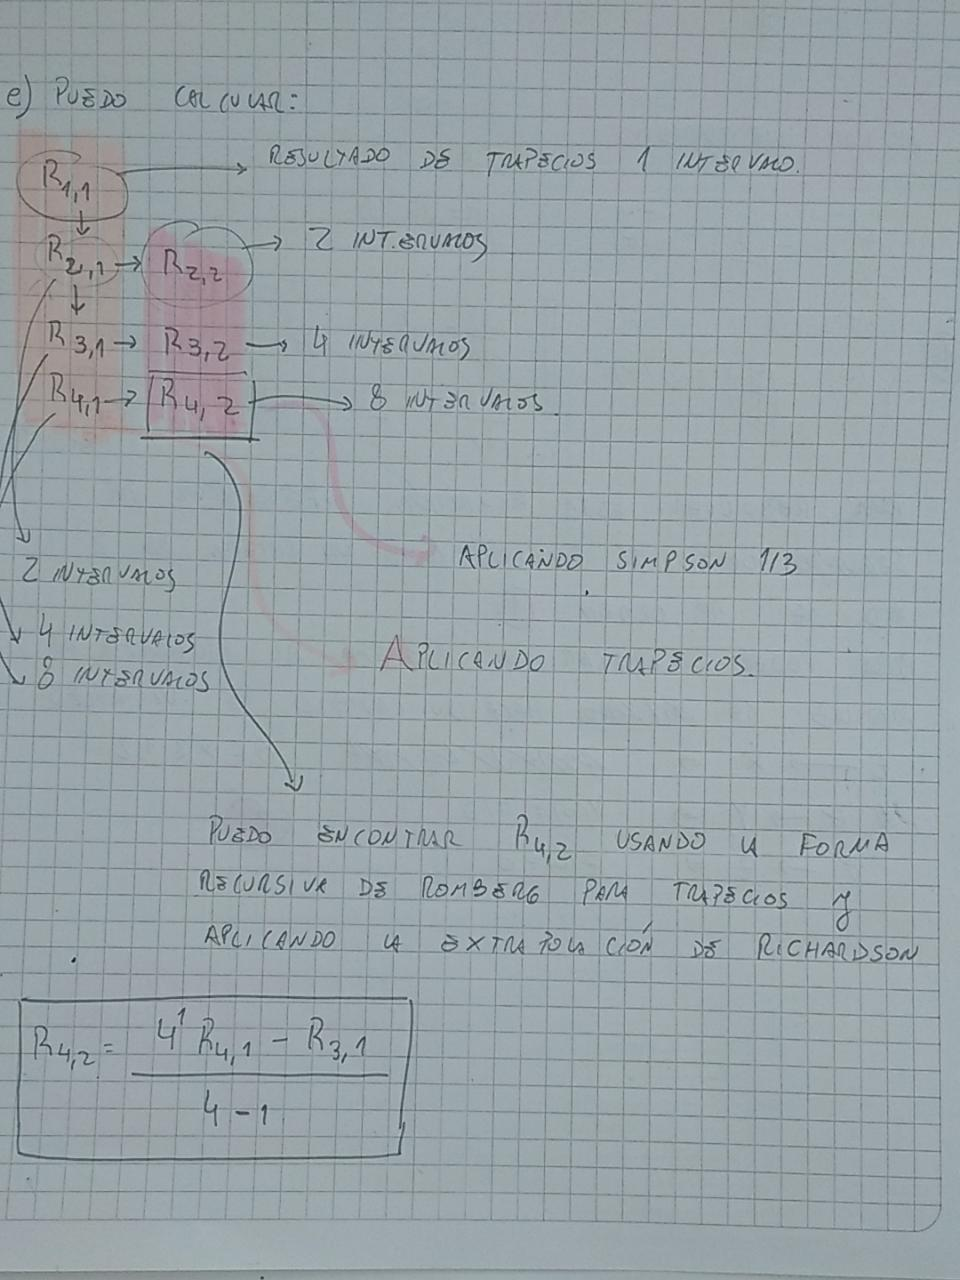 e) PUEDO CALCULAR:
R1,1 → RESULTADO DE TRAPECIOS 1 INTERVALO.
↓
R2,1 → R2,2 → 2 INTERVALOS
↓
R3,1 → R3,2 → 4 INTERVALOS
R4,1 → R4,2 → 8 INTERVALOS
APLICANDO SIMPSON 1/3
2 INTERVALOS
4 INTERVALOS
APLICANDO TRAPECIOS.
8 INTERVALOS
PUEDO ENCONTRAR R4,2 USANDO LA FORMA
RECURSIVA DE ROMBERG PARA TRAPECIOS y
APLICANDO LA EXTRAPOLACIÓN DE RICHARDSON
R4,2 = (4^1 R4,1 - R3,1) / (4 - 1)